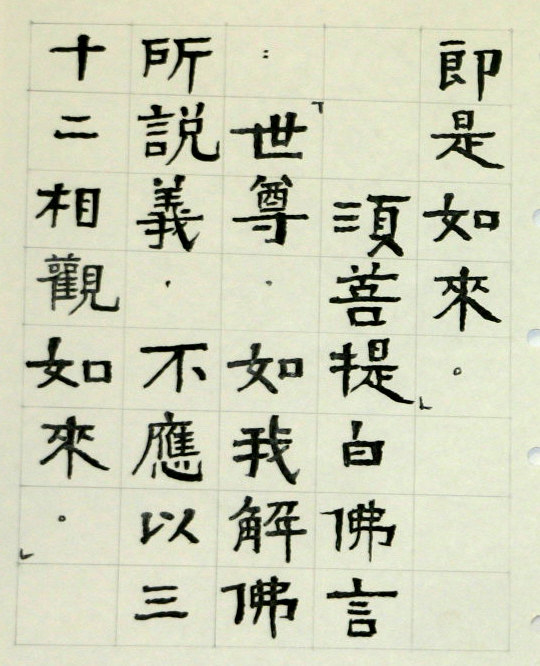 即是如來。」
須菩提白佛言
：「世尊．如我解佛
所說義．不應以三
十二相觀如來。」